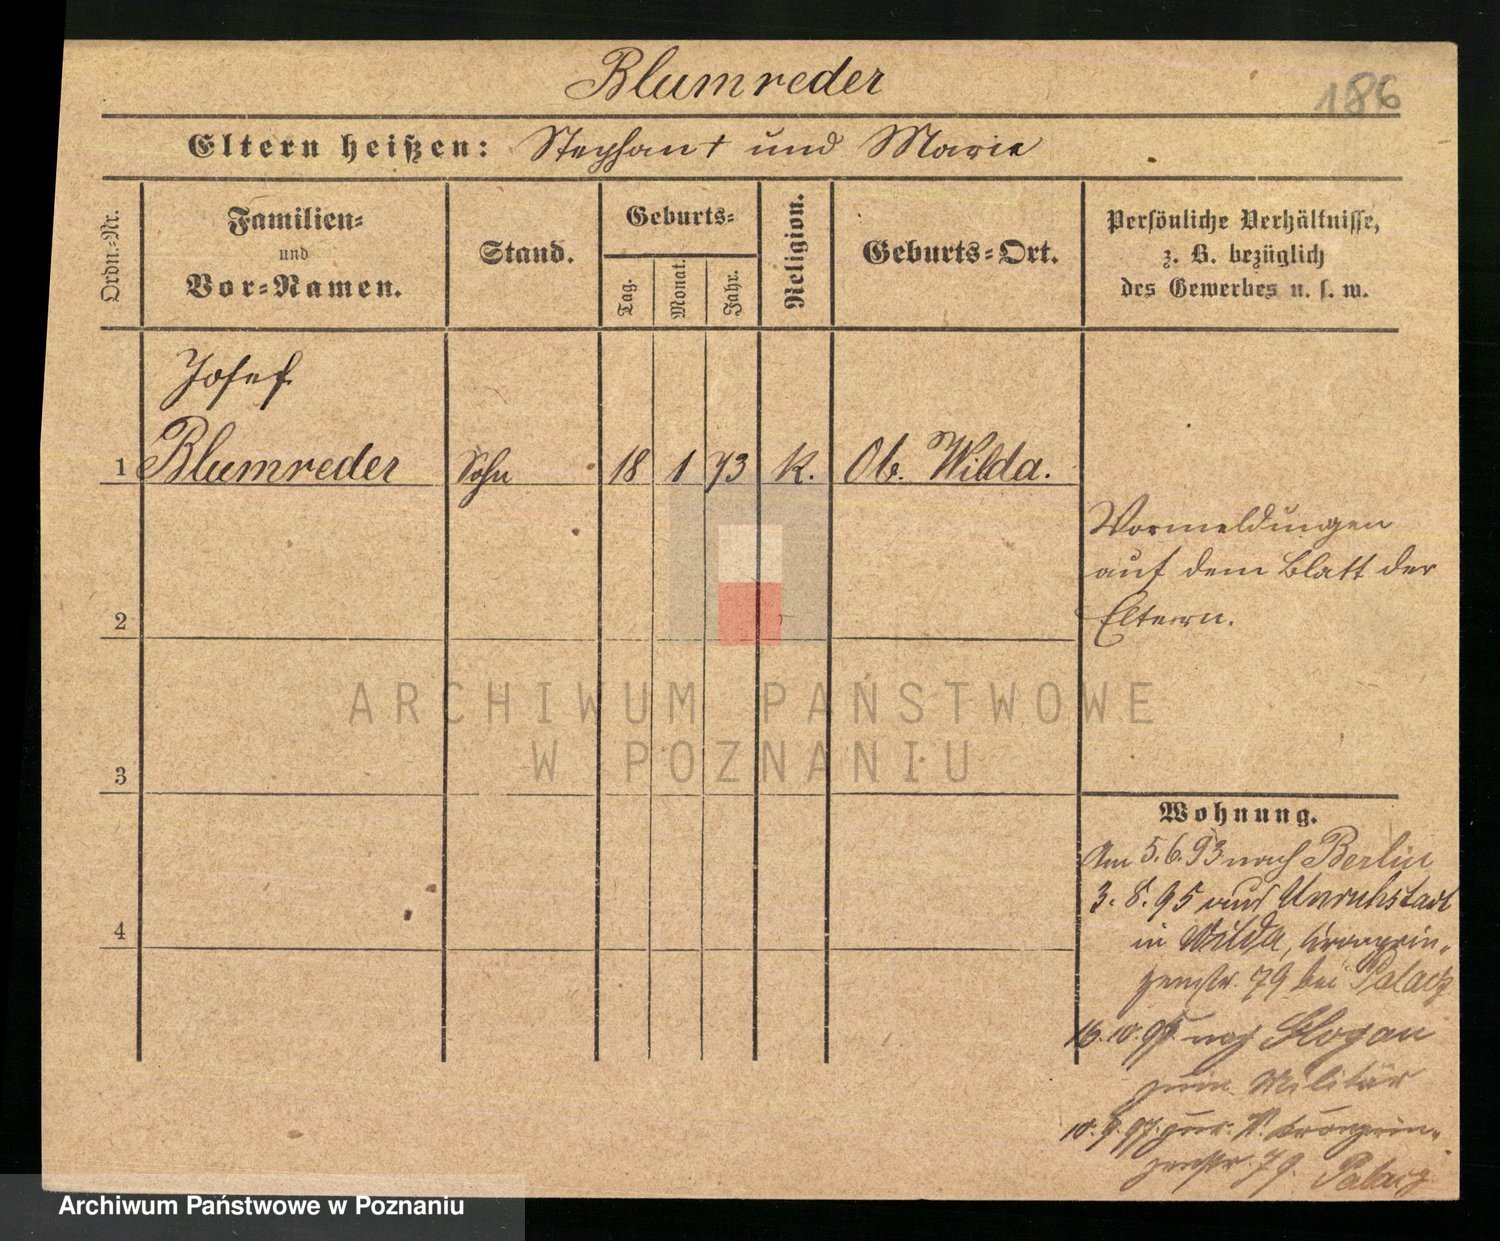 Blumreder
186
Eltern heißen: Stephan † und Marie
Ordn.-Nr.
Familien-
und
Vor-Namen.
Stand.
Geburts-
Tag.
Monat.
Jahr.
Religion.
Geburts-Ort.
Persönliche Verhältnisse,
z. B. bezüglich
des Gewerbes u. s. w.
Josef
1 Blumreder Sohn 18 1 73 K. Ob. Wilda.
Vormeldungen
auf dem Blatt der
Eltern.
2
3
4
Wohnung.
Am 5.6.93 nach Berlin
3.8.95 aus Unruhstadt
in Wilda, Kronprin-
zenstr. 79 bei Palacz
16.10.95 nach Glogau
zum Militär
10.9.97 zur. W. Kronprin-
zenstr. 79. Palacz
ARCHIWUM PAŃSTWOWE
W POZNANIU
Archiwum Państwowe w Poznaniu